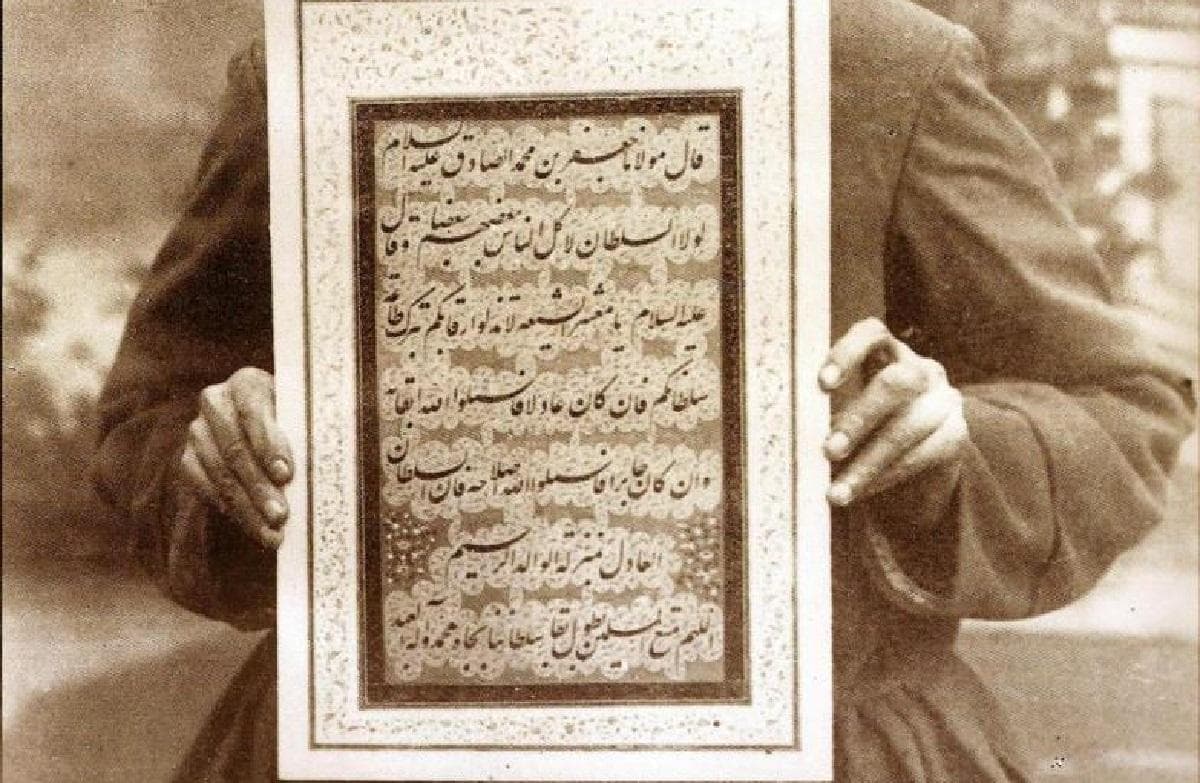 قال مولانا جعفر بن محمد الصادق علیه السلام
لولا السلطان لاکل الناس بعضهم بعضا وقال
علیه السلام یا معشر الشیعه لا تذلوا رقابکم بترک طاعة
سلطانکم فان کان عادلا فاسئلوا الله ابقائه
وان کان جابرا فاسئلوا الله اصلاحه فان السلطان
العادل بمنزلة الوالد الرحیم
اللهم متع المسلمین بطول بقاء سلطاننا بجاه محمد وآله